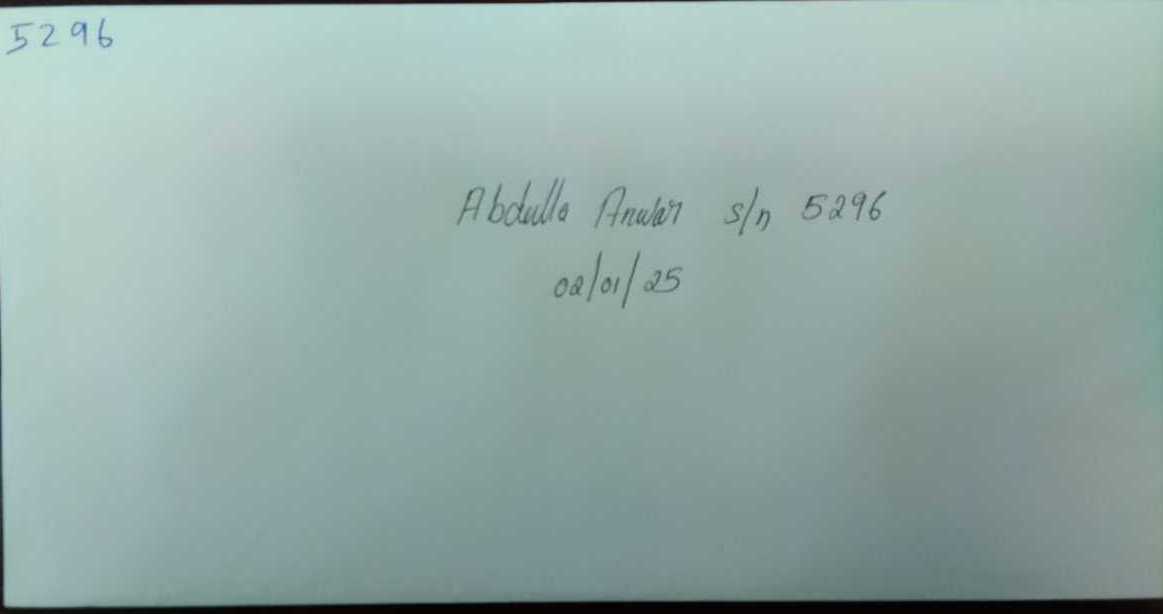 5296
Abdulla Anwar s/n 5296
02/01/25